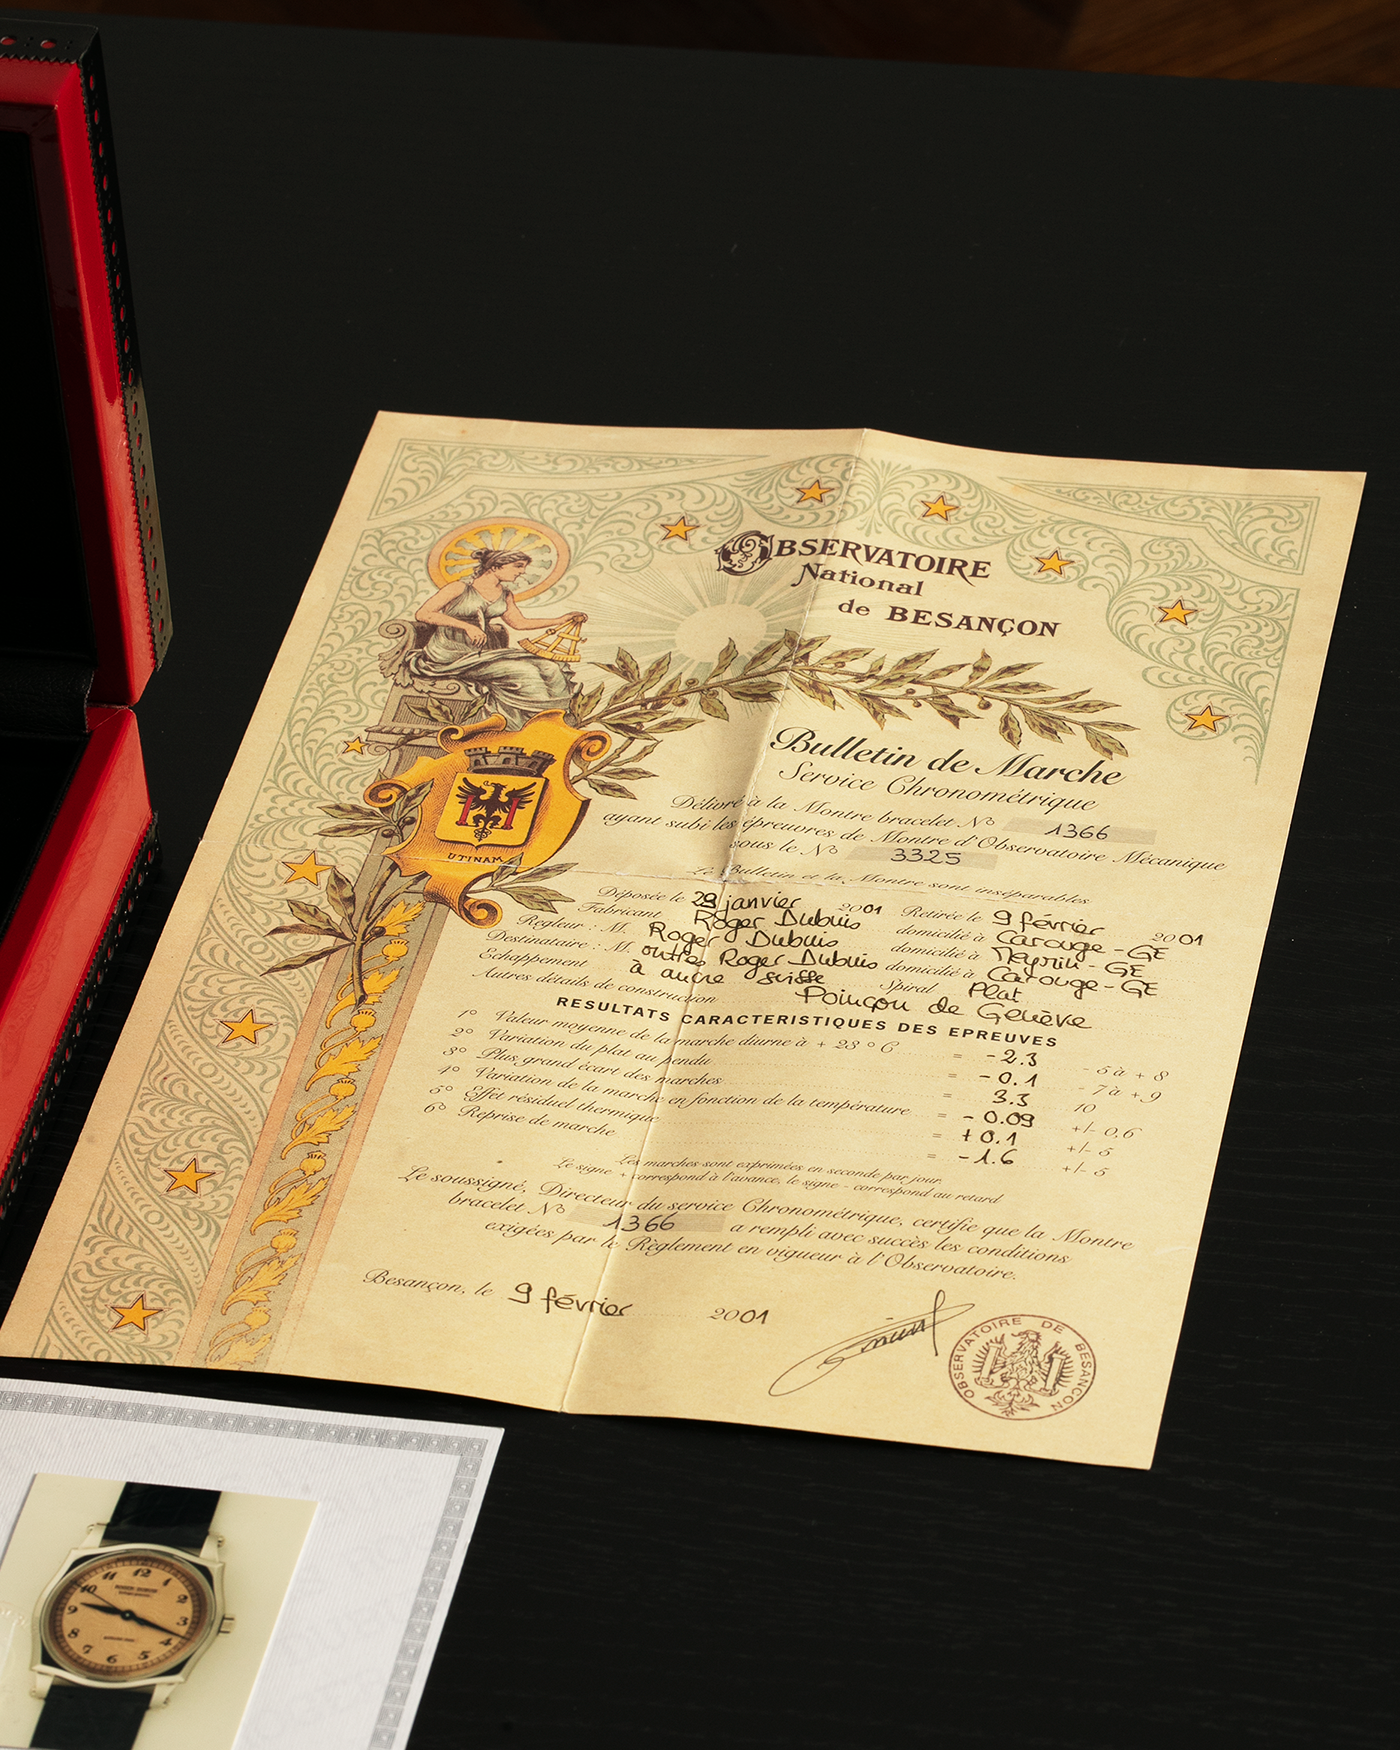 OBSERVATOIRE
National
de BESANÇON
UTINAM
Bulletin de Marche
Service Chronométrique
Délivré à la Montre bracelet No 1366
ayant subi les épreuvres de Montre d'Observatoire Mécanique
sous le No 3325
Le Bulletin et la Montre sont inséparables
Déposée le 29 janvier 2001 Retirée le 9 février 2001
Fabricant Roger Dubuis domicilié à Carouge-GE
Régleur : M. Roger Dubuis domicilié à Meyrin-GE
Destinataire : M. Roger Dubuis domicilié à Carouge-GE
Echappement à ancre suisse Spiral Plat
Autres détails de construction Poinçon de Genève
RESULTATS CARACTERISTIQUES DES EPREUVES
1° Valeur moyenne de la marche diurne à + 23 °C = -2.3 - 5 à + 8
2° Variation du plat au pendu = -0.1 - 7 à +.9
3° Plus grand écart des marches = 3.3 10
4° Variation de la marche en fonction de la température = -0.09 +/- 0,6
5° Effet résiduel thermique = +0.1 +/- 5
6° Reprise de marche = -1.6 +/- 5
Les marches sont exprimées en seconde par jour
Le signe + correspond à l'avance, le signe - correspond au retard
Le soussigné, Directeur du service Chronométrique, certifie que la Montre
bracelet No 1366 a rempli avec succès les conditions
exigées par le Règlement en vigueur à l'Observatoire.
Besançon, le 9 février 2001
OBSERVATOIRE DE BESANÇON
12
1
2
3
4
5
6
7
8
9
10
ROGER DUBUIS